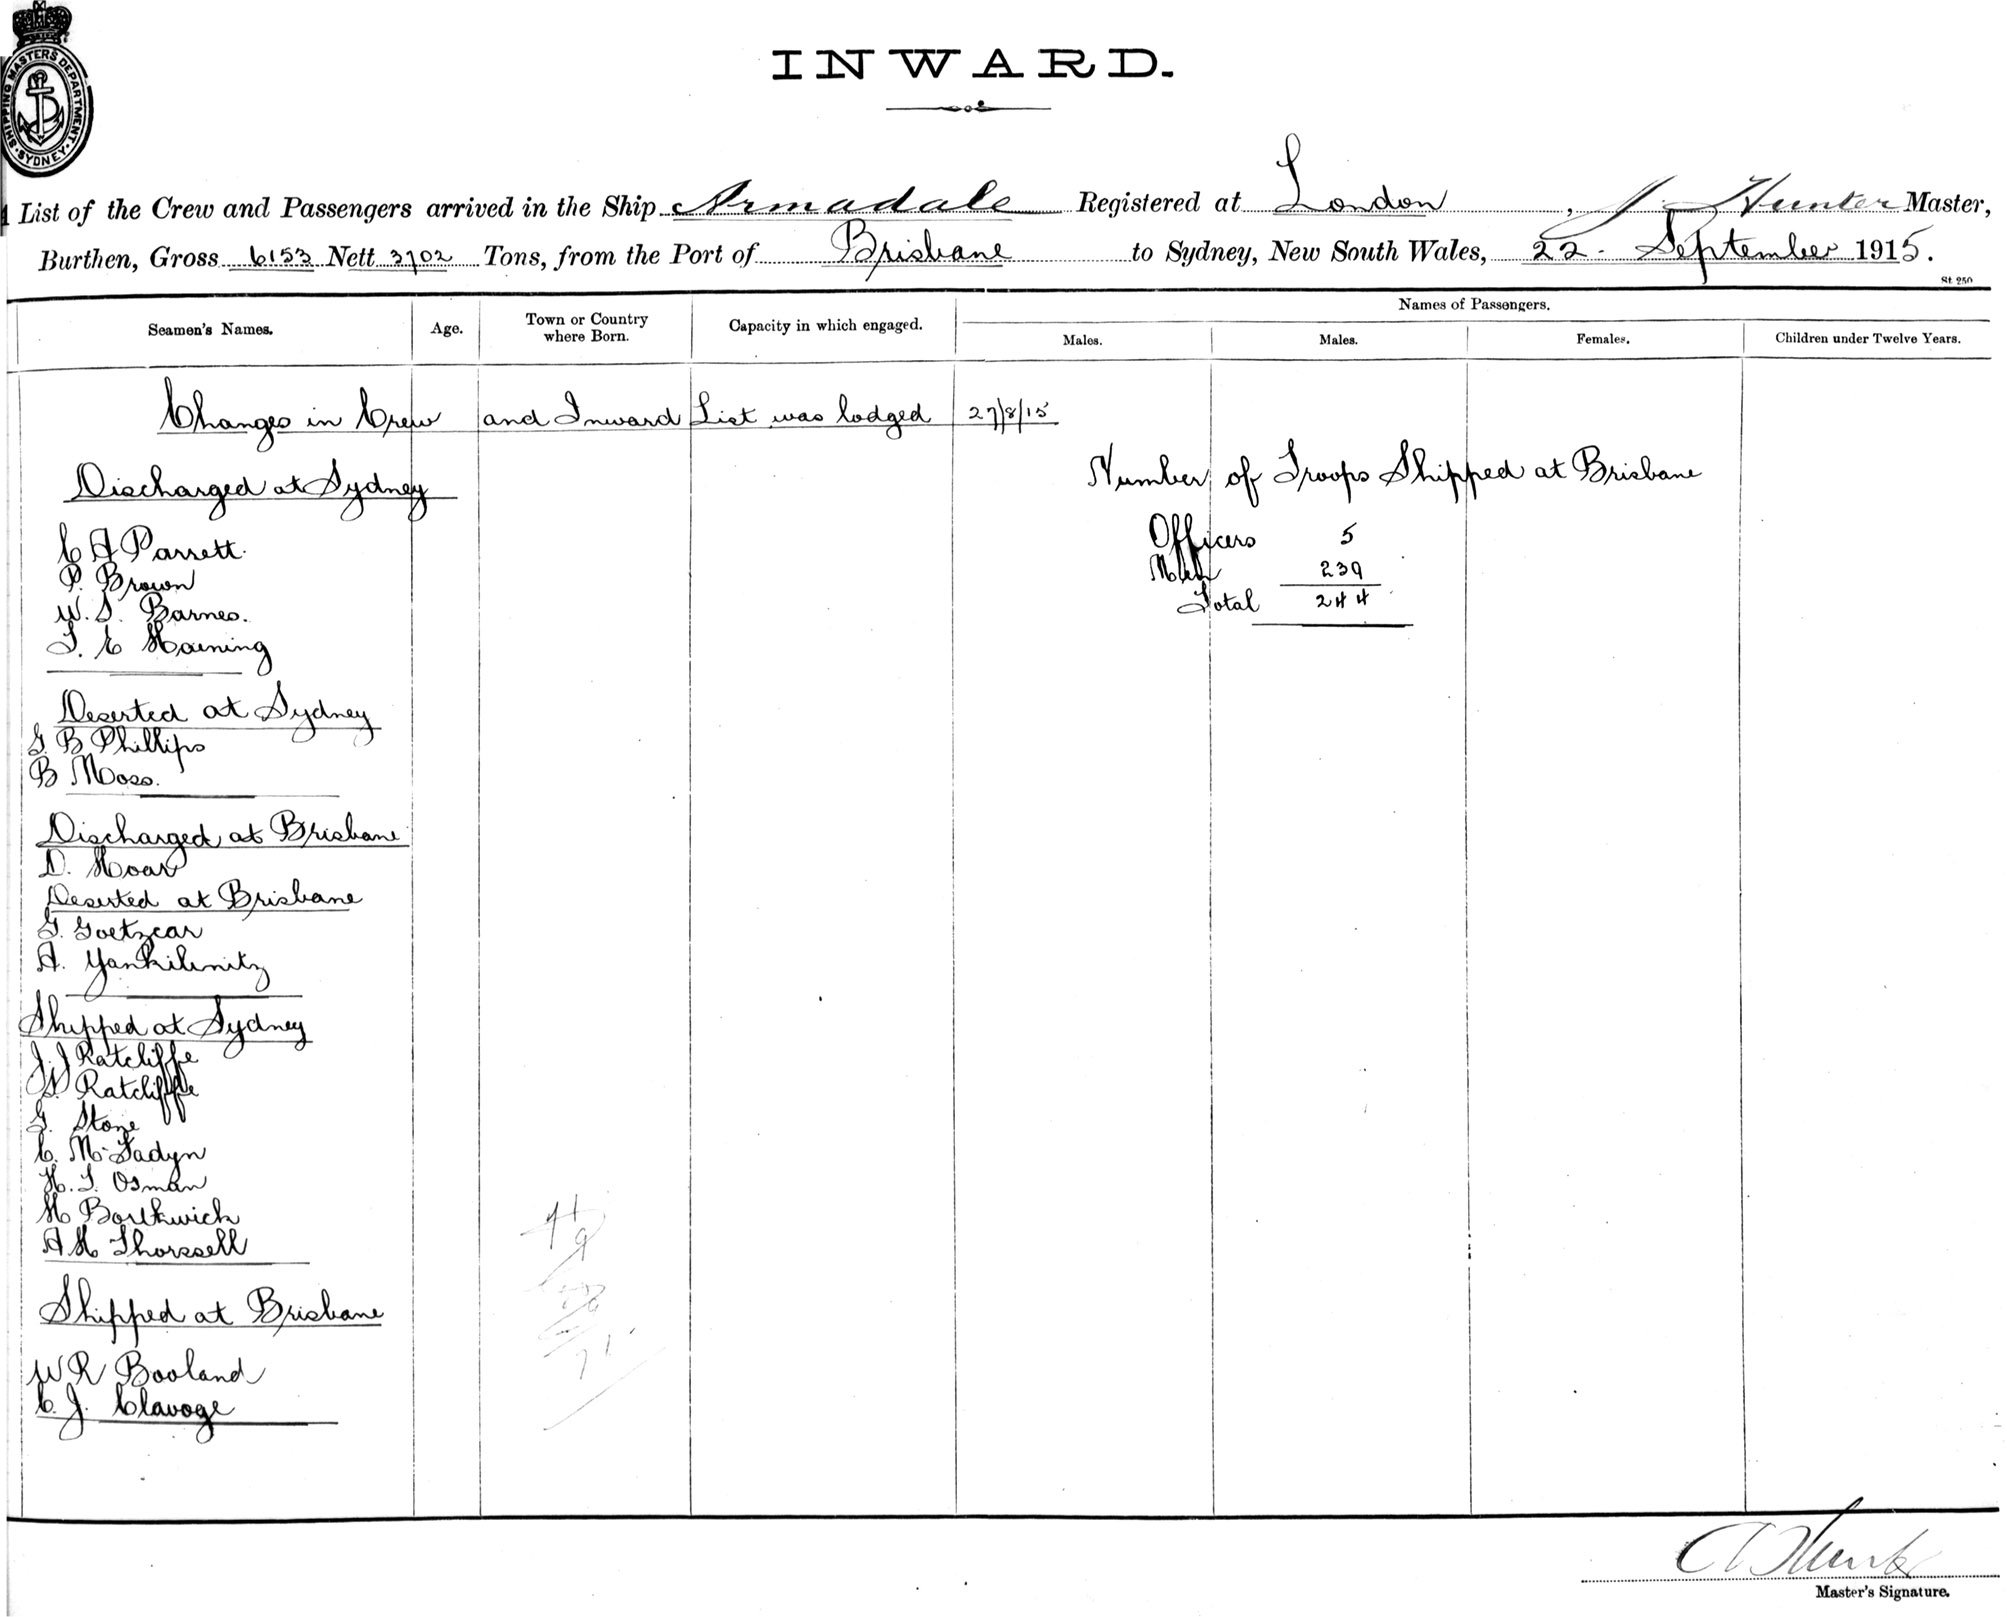 SHIPPING MASTERS DEPARTMENT
SYDNEY
INWARD.
List of the Crew and Passengers arrived in the Ship Armadale Registered at London, J. Hunter Master,
Burthen, Gross 6153 Nett 3702 Tons, from the Port of Brisbane to Sydney, New South Wales, 22 - September 1915.
St. 250
Seamen's Names. Age. Town or Country where Born. Capacity in which engaged. Names of Passengers.
Males. Males. Females. Children under Twelve Years.
Changes in Crew and Inward List was lodged 27/8/15
Number of Troops Shipped at Brisbane
Officers 5
Men 239
Total 244
Discharged at Sydney
C A Parrett.
P. Brown
W. S. Barnes.
T. E Haining
Deserted at Sydney
G B Phillips
B Moss.
Discharged at Brisbane
D. Hoar
Deserted at Brisbane
G. Goetzcar
A. Yankilnitz
Shipped at Sydney
J. J Ratcliffe
Ratcliffe
G. Stone
C. McFadyn
H. S. Osman
H Borthwick
A H Thorssell
Shipped at Brisbane
W R Booland
C. J. Clavoge
Master's Signature.